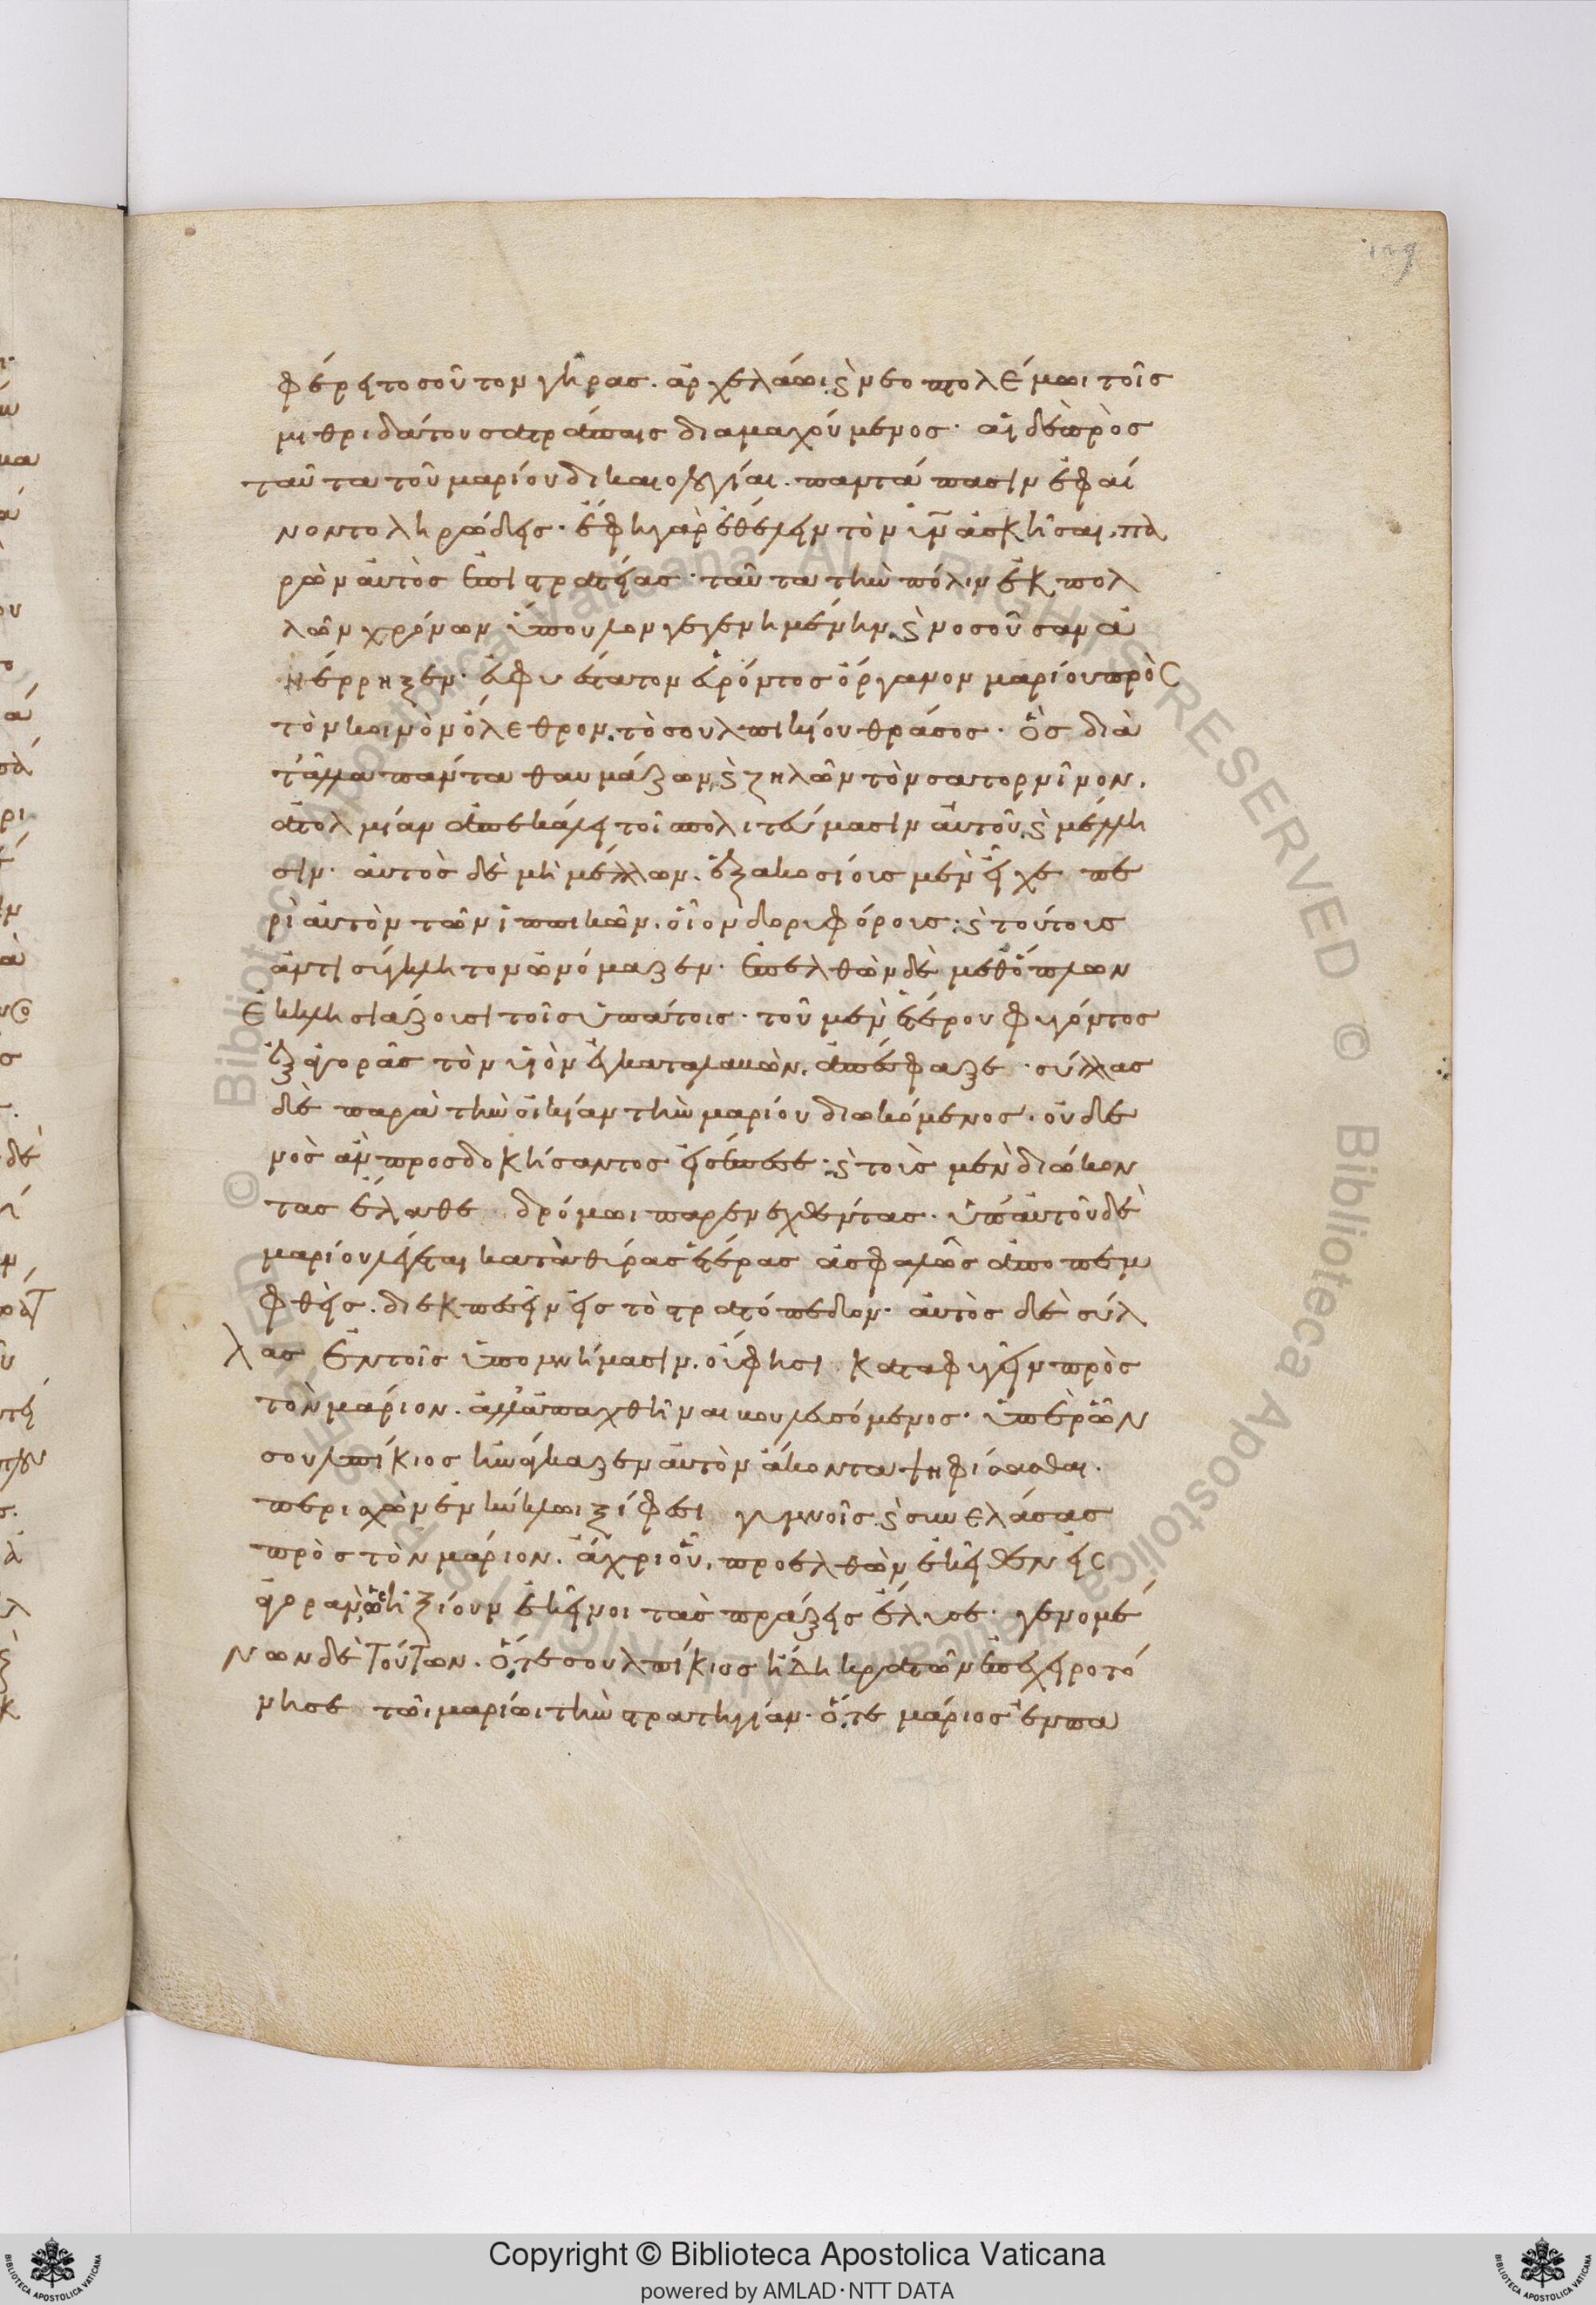 φέρει τοσοῦτον γῆρας. ἀρχελάωι ϗ νεοπτολέμωι τοῖς
μιθριδάτου σατράπαις διαμαχούμενος· αἱ δὲ πρὸς
ταῦτα τοῦ μαρίου δικαιολογίαι. παντάπασιν ἐφαί
νοντο ληρώδεις· ἔφη γὰρ ἐθέλειν τὸν υἱὸν ἀσκῆσαι. πα
ρὼν αὐτὸς ἐπὶ στρατείας· ταῦτα τὴν πόλιν ἐκ πολ
λῶν χρόνων ὕπουλον γεγενημένην, ϗ νοσοῦσαν ἀ
νέρρηξεν· εὐφυέστατον εὑρόντος ὄργανον μαρίου πρὸς
τὸν κοινὸν ὄλεθρον. τὸ σουλπικίου θράσος· ὃς διὰ
τἄλλα πάντα θαυμάζων, ϗ ζηλῶν τὸν σατορνῖνον.
ἀτολμίαν ἀπεκάλει τοῖ πολιτεύμασιν αὐτοῦ, ϗ μέλλη
σιν· αὐτὸς δὲ μὴ μέλλων. ἑξακοσίους μὲν εἶχε πε
ρὶ αὐτὸν τῶν ἱππικῶν. οἷον δορυφόρους· ϗ τούτους
ἀντισύγκλητον ὠνόμαζεν· ἐπελθὼν δὲ μεθ' ὅπλων
ἐκκλησιάζουσι τοῖς ὑπάτοις· τοῦ μὲν ἑτέρου φυγόντος
ἐξ ἀγορᾶς τὸν υἱὸν ἐγκαταλαβὼν. ἀπέσφαξε· σύλλας
δὲ παρὰ τὴν οἰκίαν τὴν μαρίου διωκόμενος. οὐδε
νὸς ἂν προσδοκήσαντος εἰσέπεσε· ϗ τοὺς μὲν διώκον
τας ἔλαθε δρόμωι παρενεχθέντας. ὑπ' αὐτοῦ δὲ
μαρίου λέγεται κατὰ θύρας ἑτέρας ἀσφαλῶς ἀποπεμ
φθεὶς. διεκπεσεῖν εἰς τὸ στρατόπεδον· αὐτὸς δὲ σύλ
λας ἐν τοῖς ὑπομνήμασιν. οὔ φησι καταφυγεῖν πρὸς
τὸν μάριον. ἀλλ' ἀπαχθῆναι βουλευσόμενος· ὑπὲρ ὧν
σουλπίκιος ἠνάγκαζεν αὐτὸν ἄκοντα ψηφίσασθαι.
περισχὼν ἐν κύκλωι ξίφεσι γυμνοῖς ϗ συνελάσας
πρὸς τὸν μάριον. ἄχρι οὗ. προελθὼν ἐκεῖθεν εἰς
ἀγορὰν, ὡς ἠξίουν ἐκεῖνοι τὰς πράξεις ἔλυσε· γενομέ
νων δὲ τούτων. ὅ, τε σουλπίκιος ἤδη κρατῶν ἐπεχειροτό
νησε τῶι μαρίωι τὴν στρατηγίαν· ὅ, τε μάριος ἐν πα